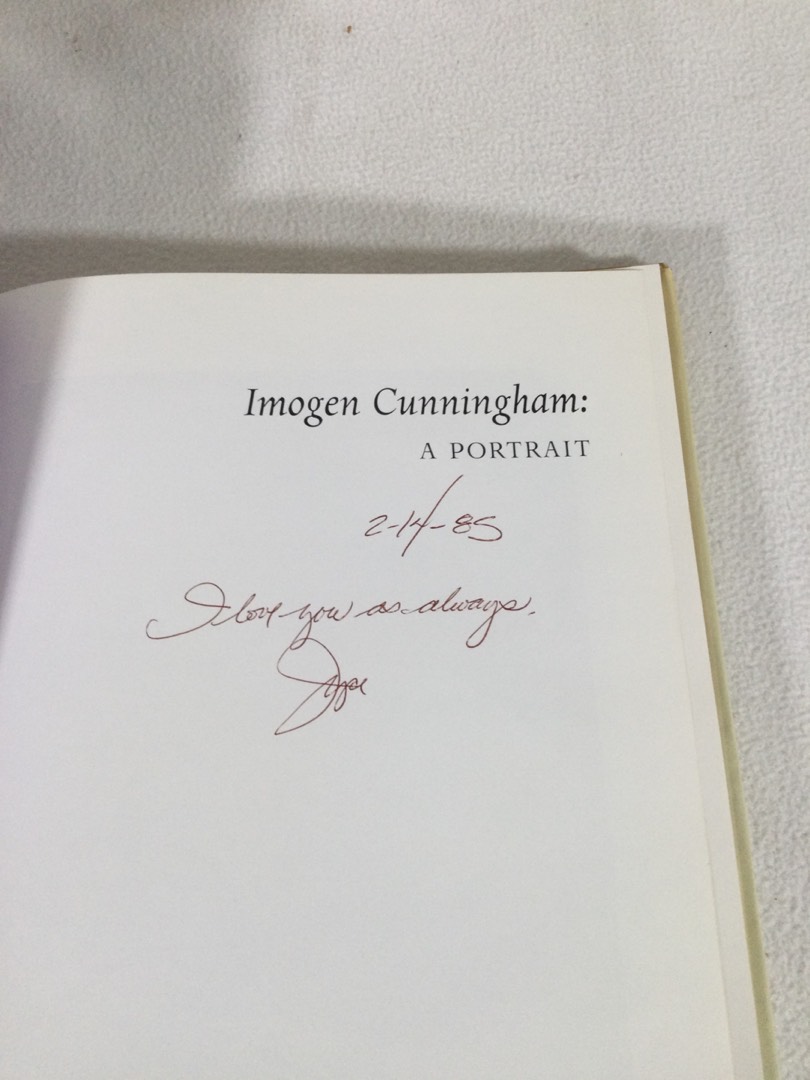 Imogen Cunningham:
A PORTRAIT
2-14-85
I love you as always.